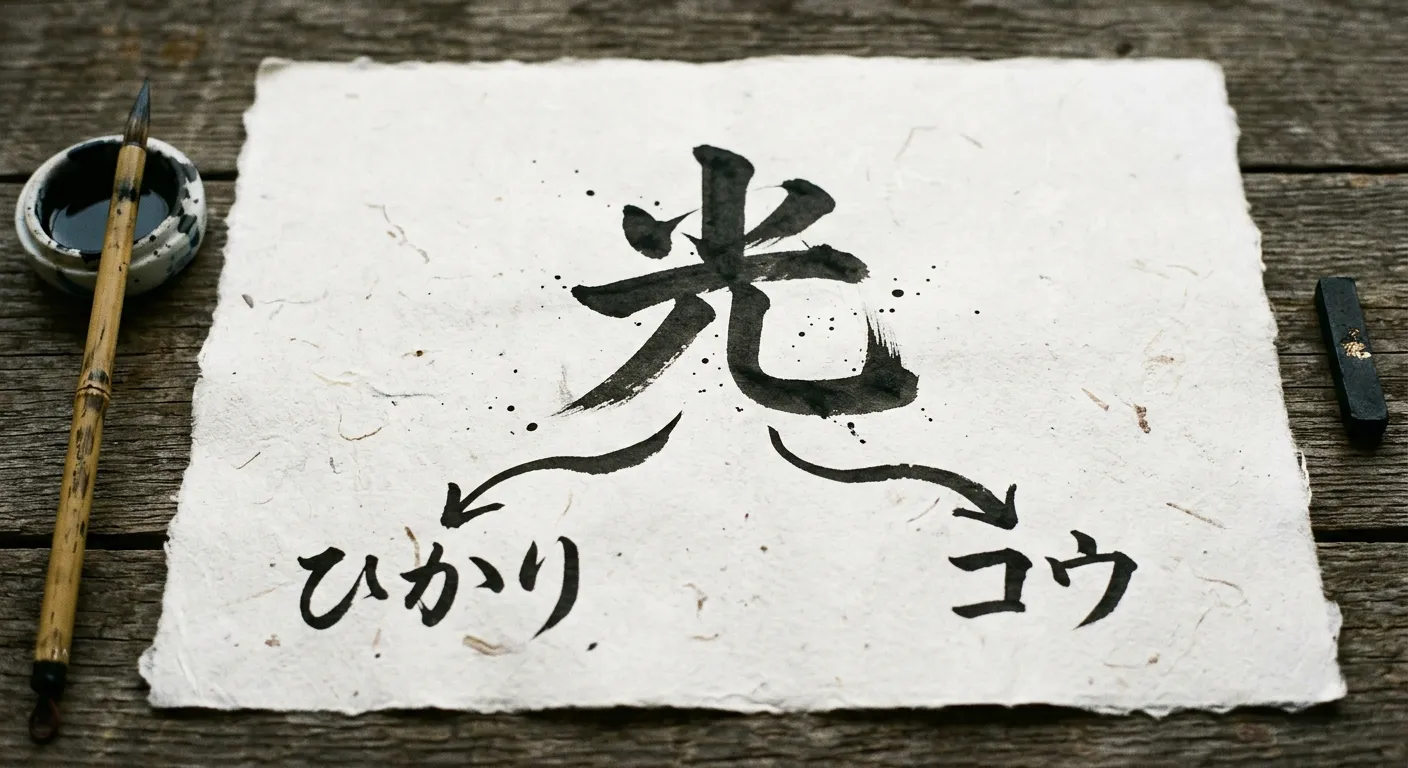 光
ひかり コウ